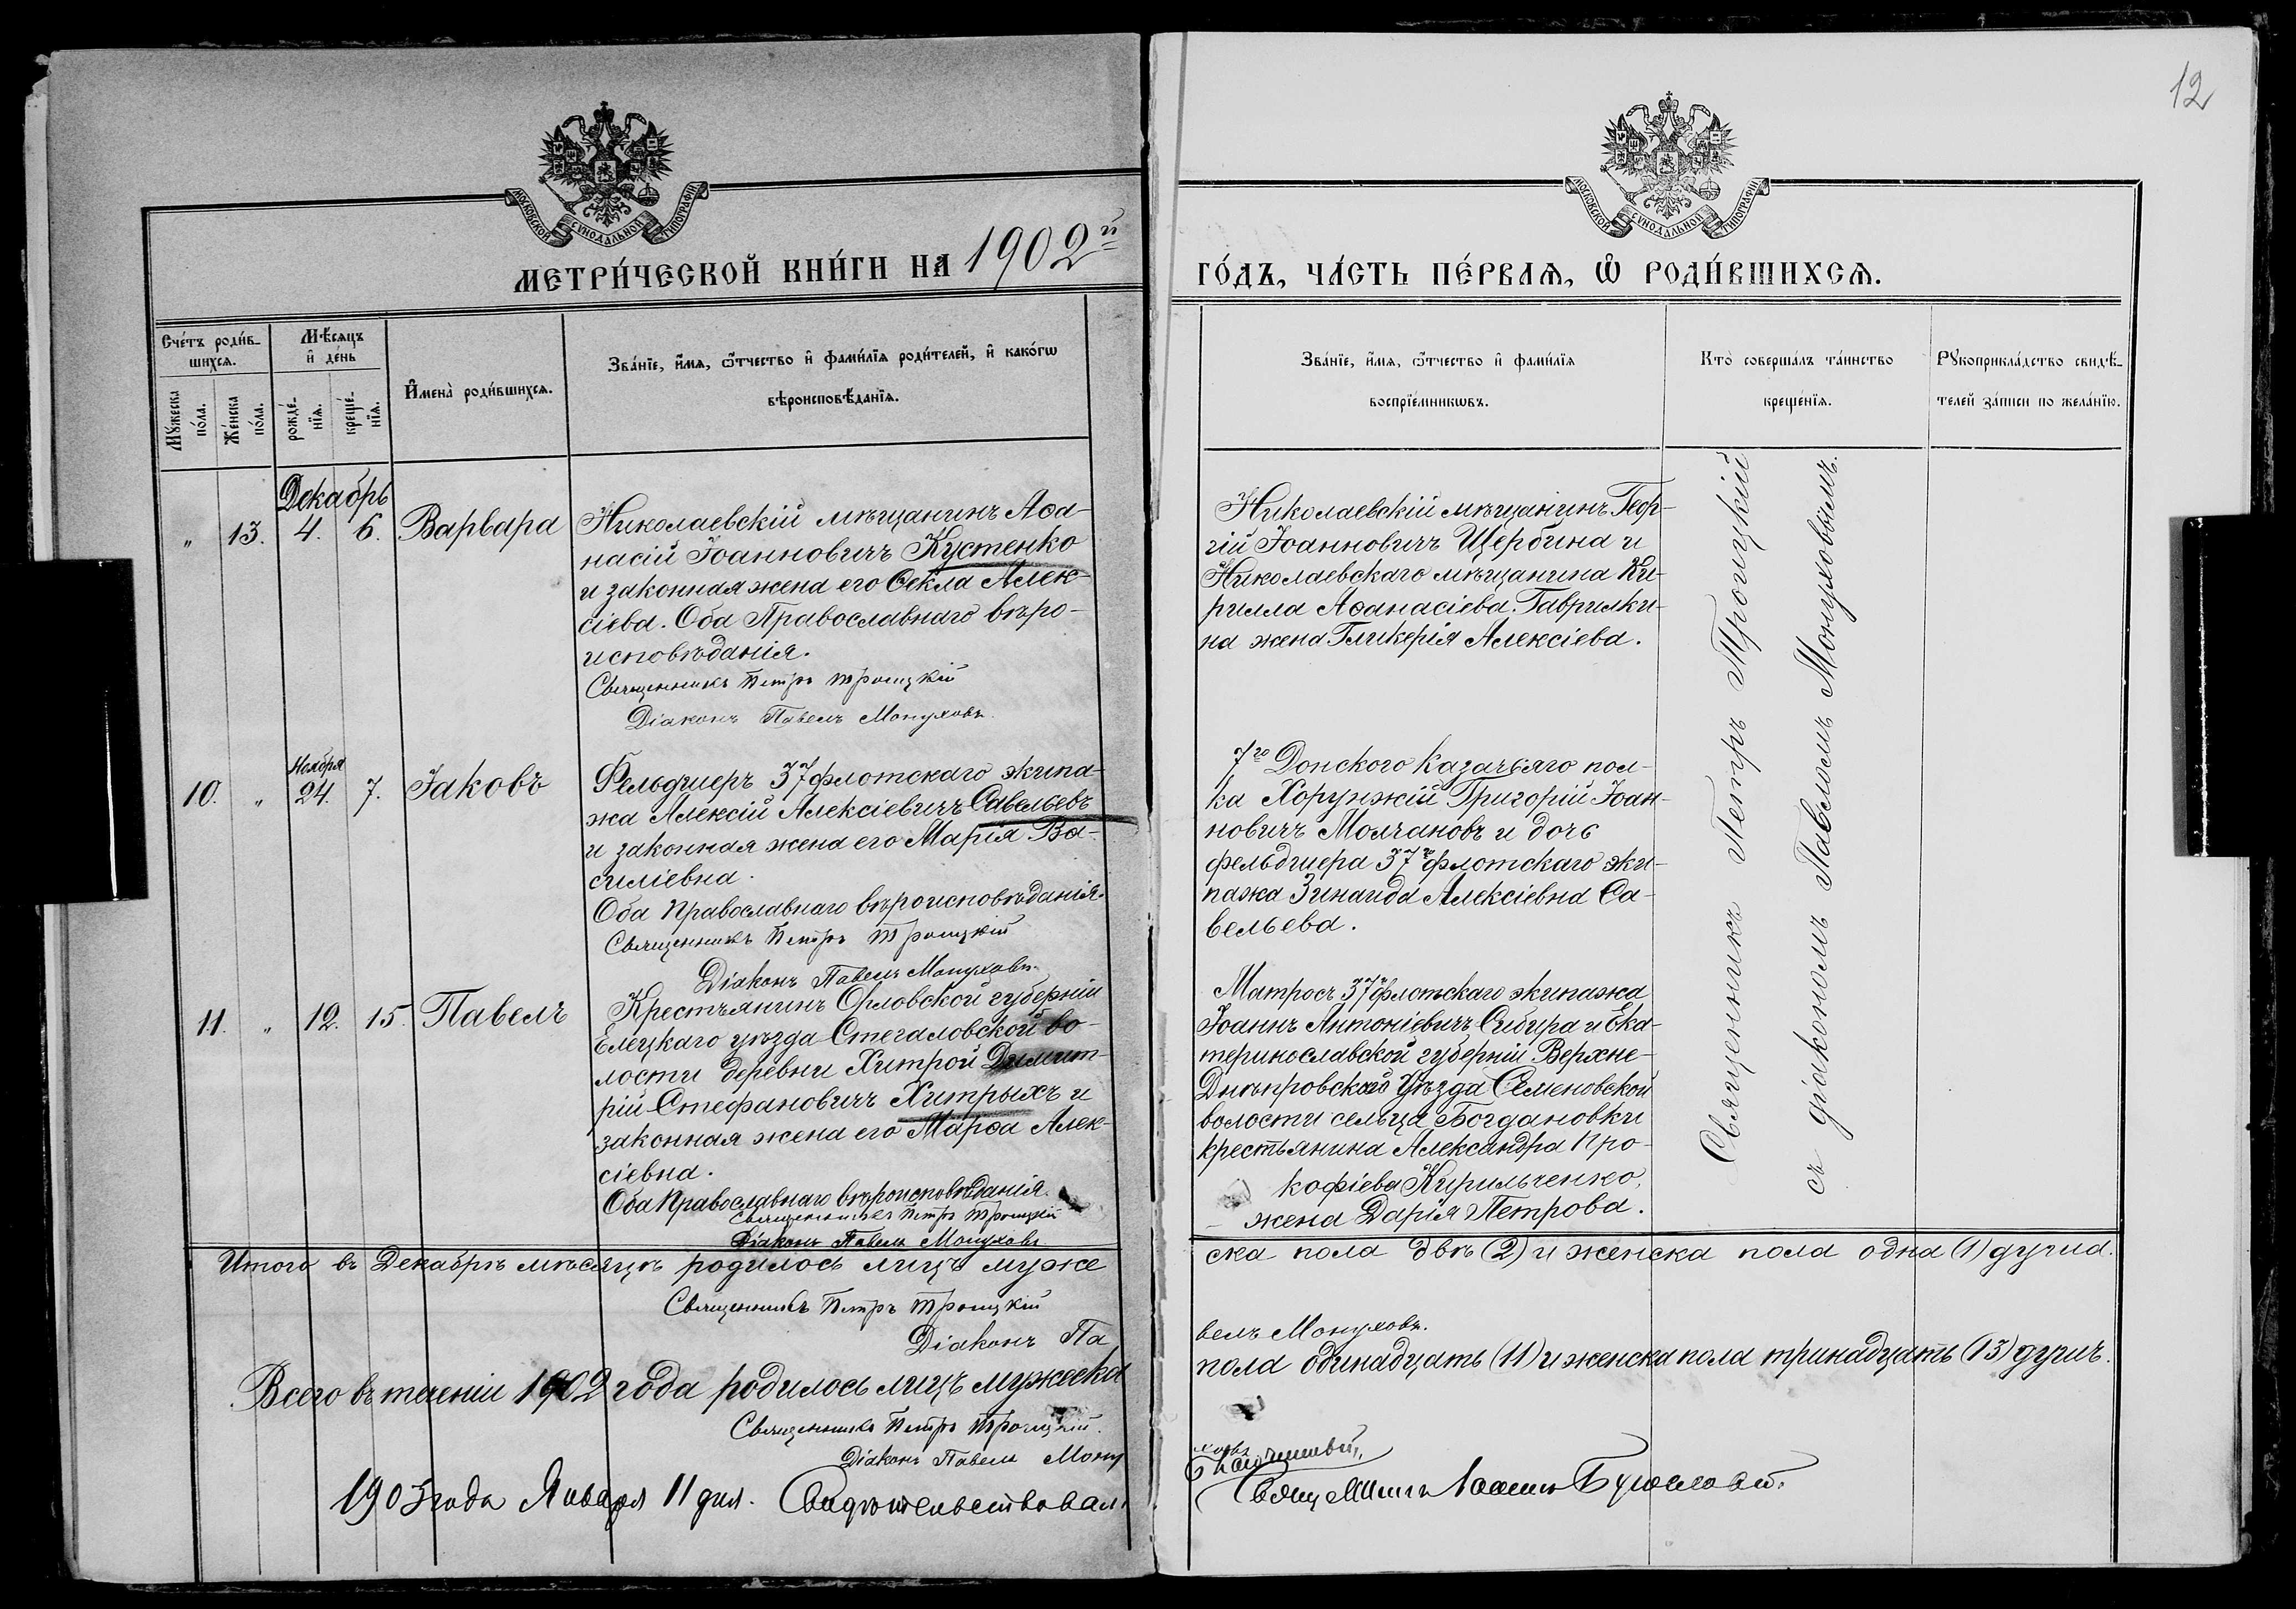 12
МОСКОВСКОЙ СѴНОДАЛЬНОЙ ТИПОГРАФІИ
МОСКОВСКОЙ СѴНОДАЛЬНОЙ ТИПОГРАФІИ
МЕТРИ́ЧЕСКОЙ КНИ́ГИ НА 1902й
ГО́ДЪ, ЧА́СТЬ ПЕ́РВАѦ, Ѡ҆ РОДИ́ВШИХСѦ.
Сче́тъ роди́в-
шихсѧ.
Мꙋ́жеска
по́ла.
Же́нска
по́ла.
Мѣ́сѧцъ
и҆ де́нь
рожде́-
нїѧ.
креще́-
нїѧ.
И҆мена̀ роди́вшихсѧ.
Зва́нїе, и҆́мѧ, ѻ҆́тчество и҆ фами́лїѧ роди́телей, и҆ како́гѡ
вѣроисповѣ́данїѧ.
Зва́нїе, и҆́мѧ, ѻ҆́тчество и҆ фами́лїѧ
воспрїе́мникѡвъ.
Кто̀ соверша́лъ та́инство
креще́нїѧ.
Рꙋкоприкла́дство свидѣ́-
телей за́писи по жела́нїю.
Декабрь
" 13. 4. 6. Варвара
Николаевскій мѣщанинъ Аѳа-
насій Іоанновичъ Кустенко
и законная жена его Ѳекла Алек-
сіева. Оба Православнаго вѣро-
исповѣданія.
Священникъ Петръ Троицкій
Діаконъ Павелъ Монуховъ.
Николаевскій мѣщанинъ Геор-
гій Іоанновичъ Щербина и
Николаевскаго мѣщанина Ки-
рилла Аѳанасіева Гаврилки-
на жена Гликерія Алексіева.
Ноября
10. " 24. 7. Іаковъ
Фельдшеръ 37 флотскаго экипа-
жа Алексій Алексіевичъ Савельевъ
и законная жена его Марія Ва-
силіевна.
Оба Православнаго вѣроисповѣданія.
Священникъ Петръ Троицкій
Діаконъ Павелъ Монуховъ.
7го Донского Казачьяго пол-
ка Хорунжій Григорій Іоан-
новичъ Молчановъ и дочь
фельдшера 37го флотскаго эки-
пажа Зинаида Алексіевна Са-
вельева.
11. " 12. 15. Павелъ
Крестьянинъ Орловской губерніи
Елецкаго уѣзда Стегаловской во-
лости деревни Хитрой Димит-
рій Стефановичъ Хитрыхъ и
законная жена его Марѳа Алек-
сіевна.
Оба Православнаго вѣроисповѣданія.
Священникъ Петръ Троицкій
Діаконъ Павелъ Монуховъ
Матросъ 37го флотскаго экипажа
Іоаннъ Антоніевичъ Сибира и Ека-
теринославской губерніи Верхне-
Днѣпровскаго Уѣзда Семеновской
волости сельца Богдановки
крестьянина Александра Про-
кофіева Кирильченко,
жена Дарія Петрова.
Священникъ Петръ Троицкій
съ діакономъ Павломъ Монуховымъ.
Итого въ Декабрѣ мѣсяцѣ родилось лицъ муже
ска пола двѣ (2) и женска пола одна (1) душа.
Священникъ Петръ Троицкій
Діаконъ Па
велъ Монуховъ.
Всего въ теченіи 1902 года родилось лицъ мужеска
пола одинадцать (11) и женска пола тринадцать (13) душъ.
Священникъ Петръ Троицкій.
Діаконъ Павелъ Мону
ховъ
1903 года Января 11 дня. Свидѣтельствовалъ